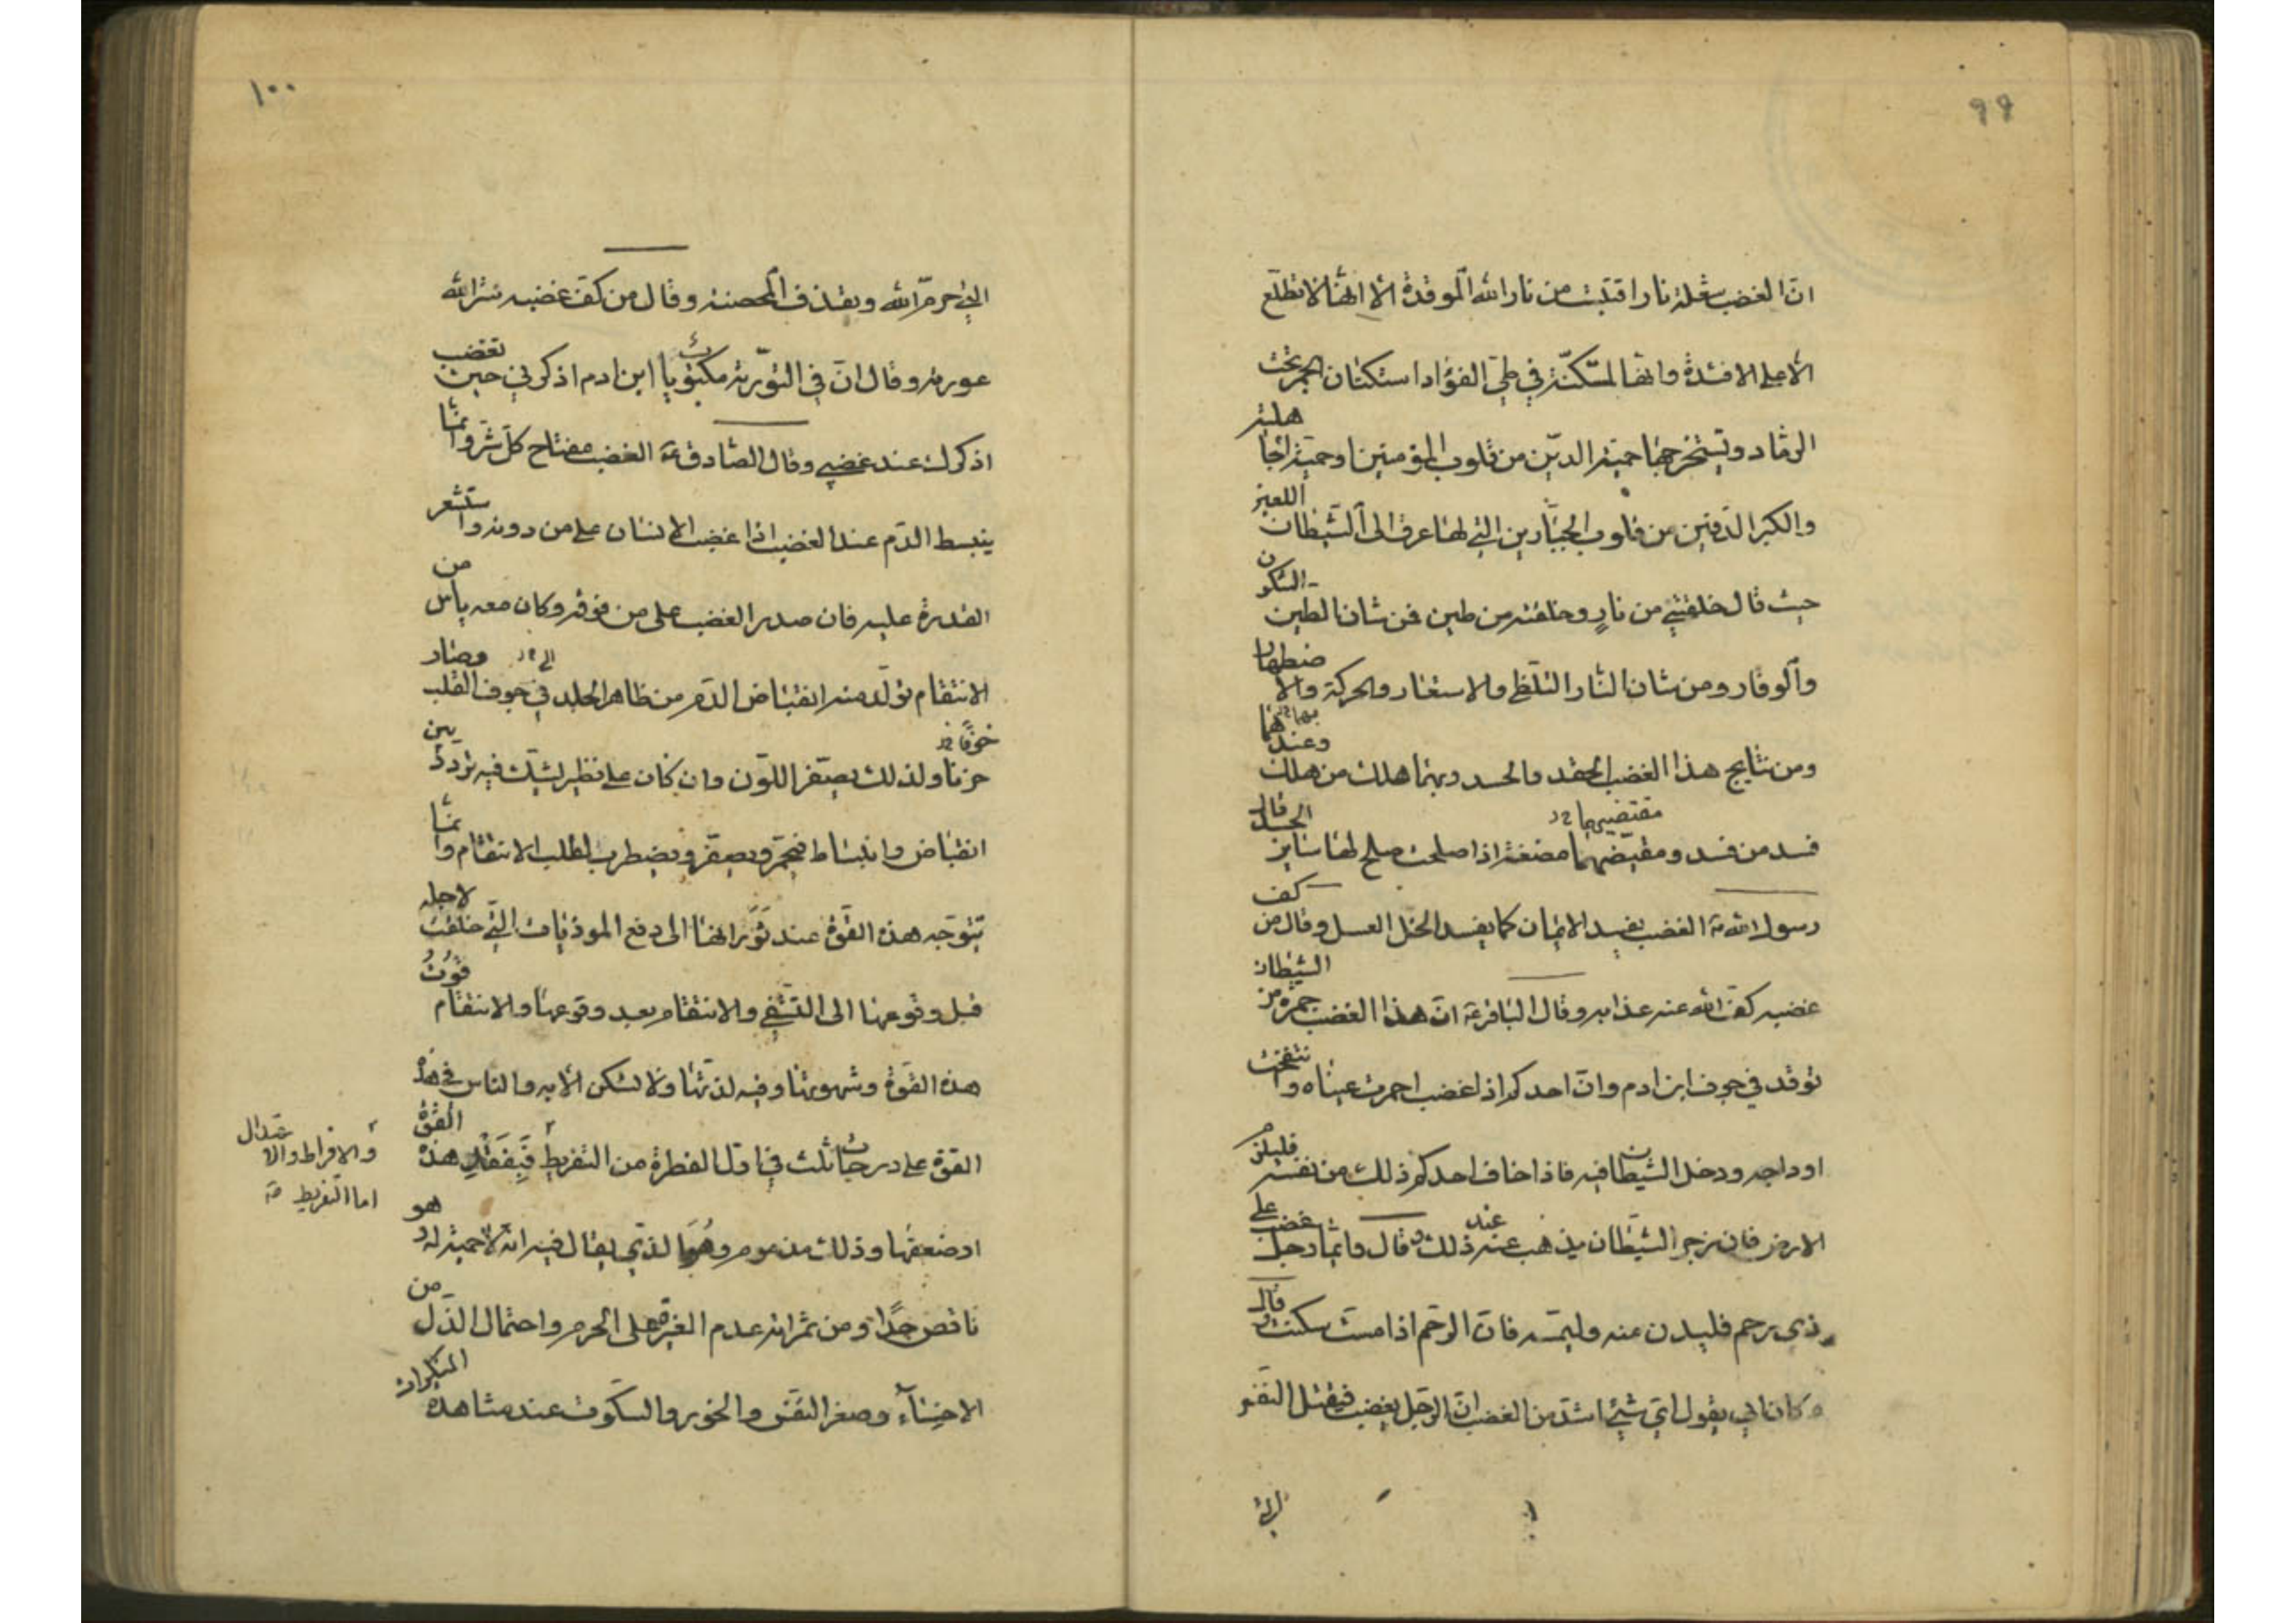 ٩٩
انّ الغضب شعلة نار اقتبت من نار الله الموقدة الا انها لا تطلع
الا على الافئدة وانها لمستكنة في طيّ الفؤاد استكنان الجمر تحت
الرماد ويستخرجها حمية الدّين من قلوب المؤمنين او حمية الجاهلية
والكبر الدفين من قلوب الجبّارين التي لها عرق الى الشيطان اللعين
حيث قال خلقتني من نارٍ وخلقته من طين فمن شان الطين السكون
والوقار ومن شان النار التلظي والاستعار والحركة والاضطراب
ومن نتايج هذا الغضب الحقد والحسد وبهما هلك من هلك وعندهما
فسد من فسد ومقيضهما مضغة اذا صلحت صلح لها ساير الجسد قال
مقتضيهما
رسول الله ص الغضب يفسد الايمان كما يفسد الخل العسل وقال من كف
غضبه كفّ الله عنه عذابه وقال الباقر ع انّ هذا الغضب جمرة من الشيطان
توقد في جوف ابن ادم وانّ احدكم اذا غضب احمرت عيناه وانتفخت
اوداجه ودخل الشيطان فيه فاذا خاف احدكم ذلك من نفسه فليلزم
الارض فان رجز الشيطان يذهب عنه عند ذلك وقال وايّما رجل غضب على
ذى رحم فليدن منه وليمسه فانّ الرحم اذا مست سكنت وقال
وكان ابي يقول ايّ شيئ اشدّ من الغضب انّ الرجل يغضب فيقتل النفس
التي
١٠٠
التي حرم الله ويقذف المحصنة وقال من كفّ غضبه ستر الله
عورته وقال انّ في التورية مكتوبا يا ابن ادم اذكرني حين تغضب
اذكرك عند غضبي وقال الصّادق ع الغضب مفتاح كلّ شرّ وانّما
ينبسط الدّم عند الغضب اذا غضب الانسان على من دونه واستشعر
القدرة عليه فان صدر الغضب على من فوقه وكان معه ياس من
الانتقام تولّد منه انقباض الدّم من ظاهر الجلد في جوف القلب وصار
الى
حزنا ولذلك يصفر اللون وان كان على نظير يشك فيه تردد بين
خوفًا
انقباض وانبساط فيحمرّ ويصفرّ ويضطرب لطلب الانتقام وانّما
يتوجّه هذه القوّة عند ثورانها الى دفع الموذيات التي خلقت لاجله
قبل وقوعها الى التشفي والانتقام بعد وقوعها والانتقام قوت
هذه القوّة وشهوتها وفيه لذّتها ولا تسكن الا به والناس في هذه
القوة على درجات ثلث في اوّل الفطرة من التفريط فيفقد هذه القوّة
والافراط والاعتدال
اما التفريط
او ضعفها وذلك مذموم وهو الذي يقال فيه انّه لا حمية له وهو
ناقص جدًا ومن ثمراته عدم الغيرة على الحرم واحتمال الذل من
الاخسّاء وصغر النفس والخور والسكوت عند مشاهدة المنكرات